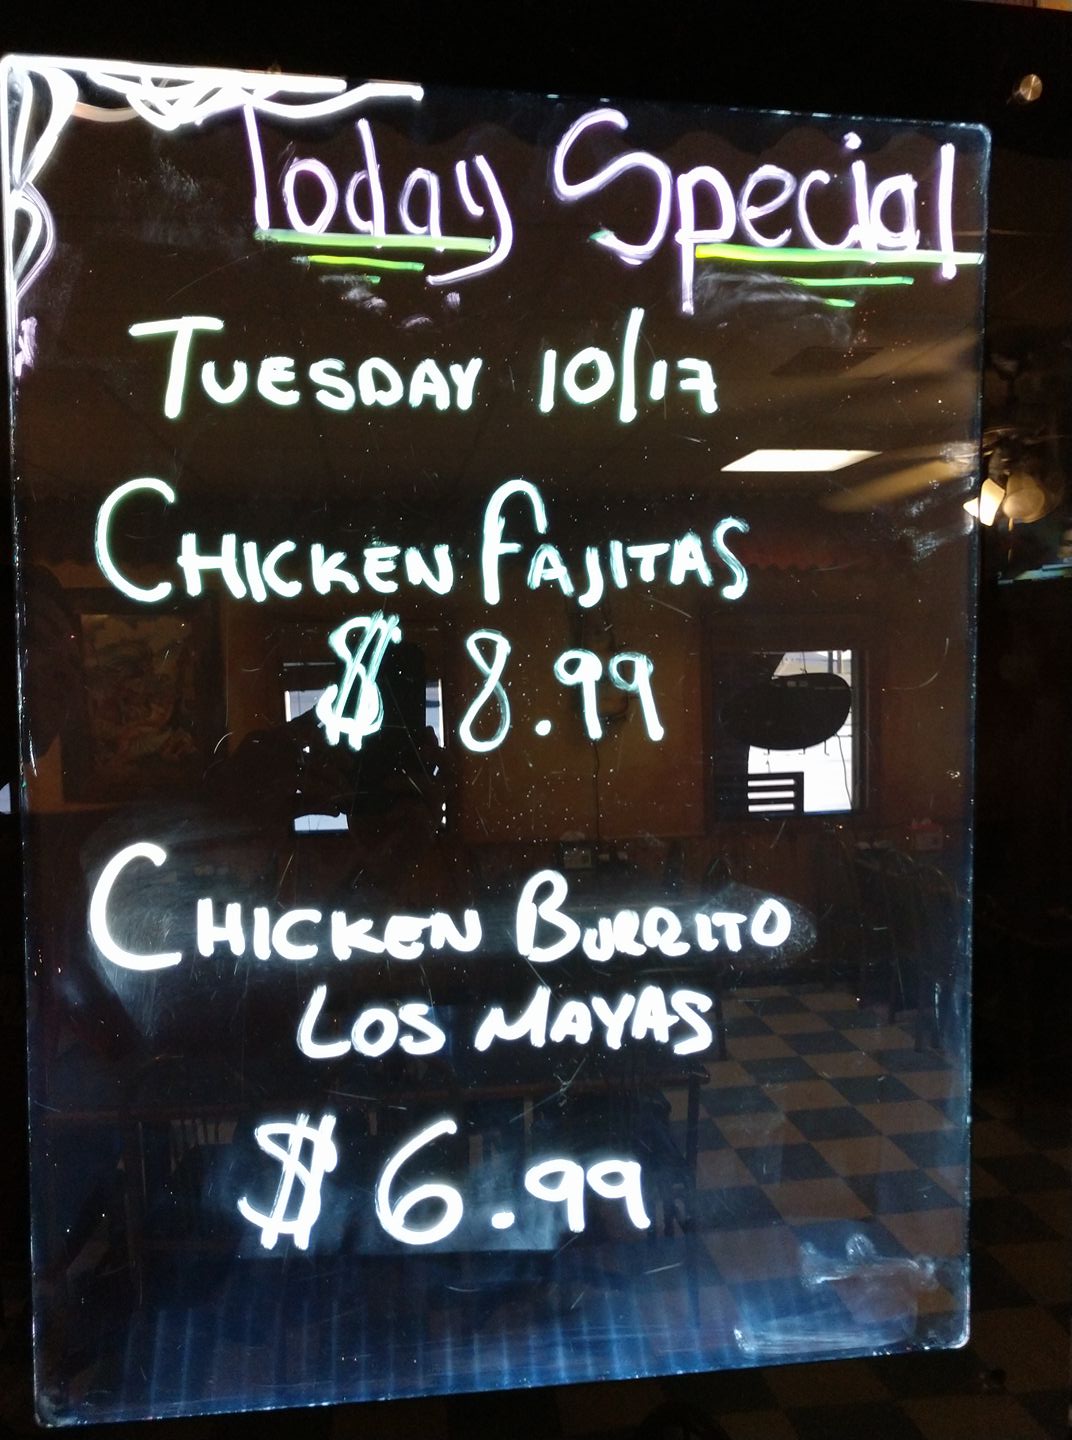 Today Special
TUESDAY 10/17
CHICKEN FAJITAS
$ 8.99
CHICKEN BURRITO
LOS MAYAS
$ 6.99